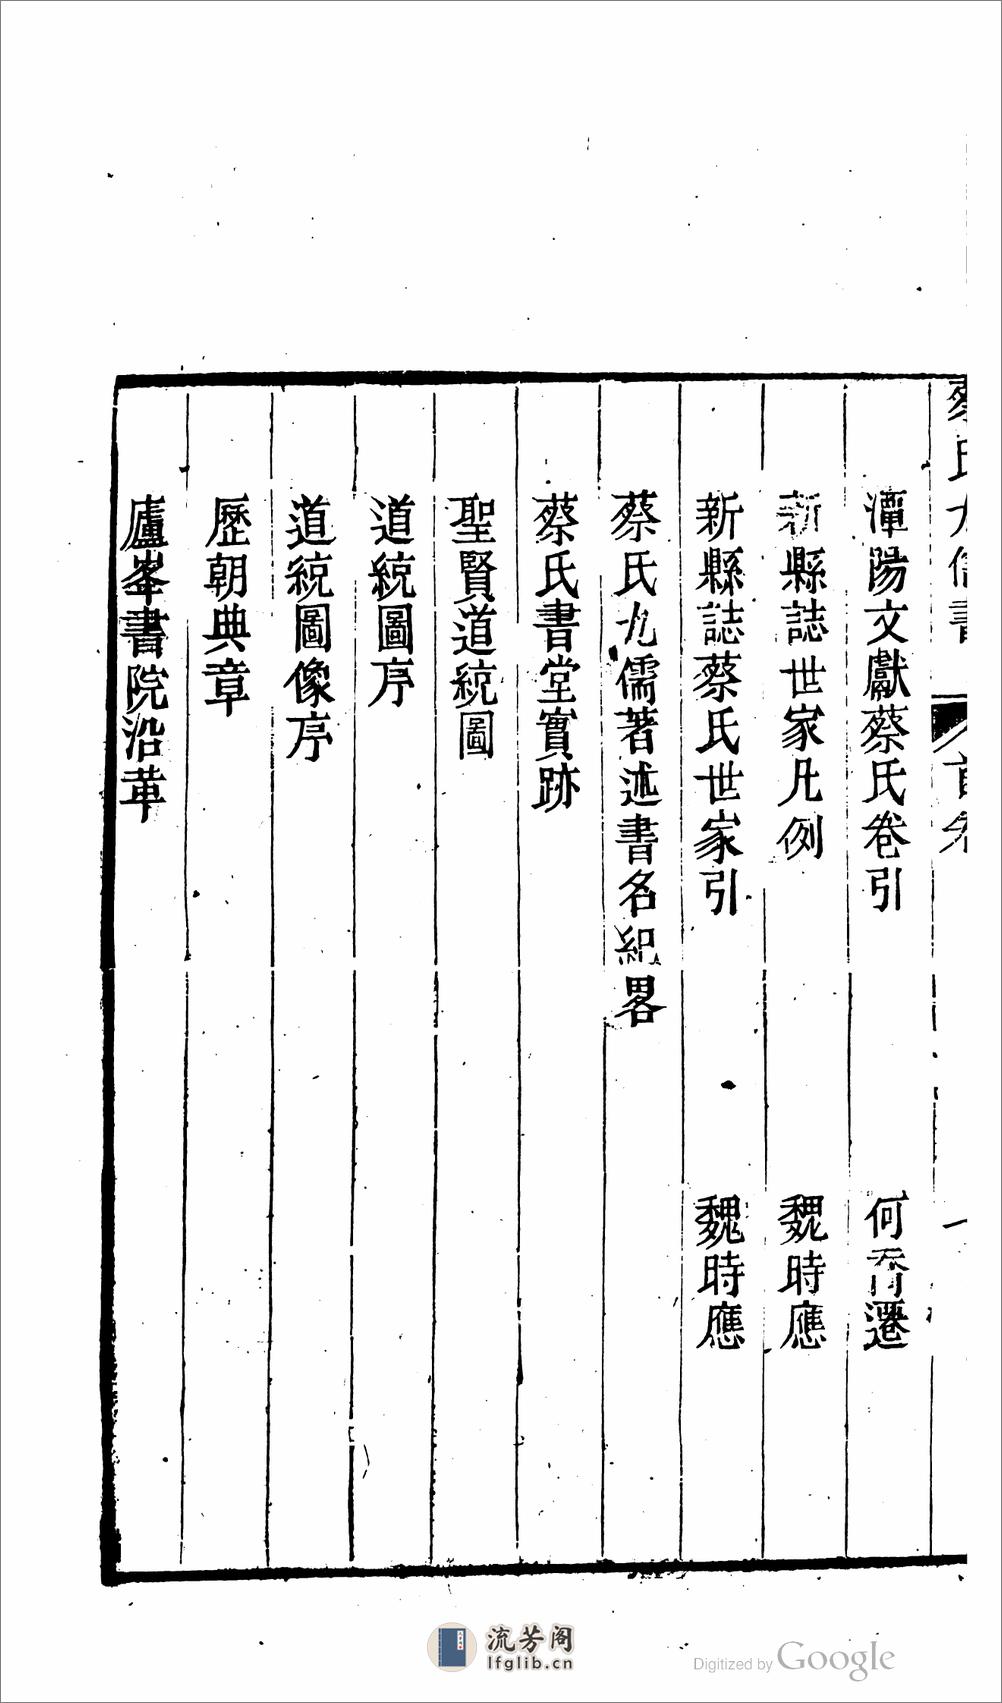 蔡氏九儒書 首卷 一
潭陽文獻蔡氏卷引 何喬遷
新縣誌世家凡例 魏時應
新縣誌蔡氏世家引 魏時應
蔡氏九儒著述書名紀畧
蔡氏書堂實跡
聖賢道統圖
道統圖序
道統圖像序
歷朝典章
廬峯書院沿革
流芳阁
lfglib.cn
Digitized by Google